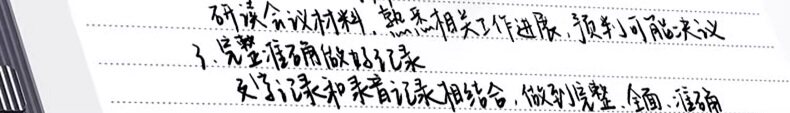 研读会议材料，熟悉相关工作进展，预判可能决议
3、完整准确做好记录
文字记录和录音记录相结合，做到完整、全面、准确